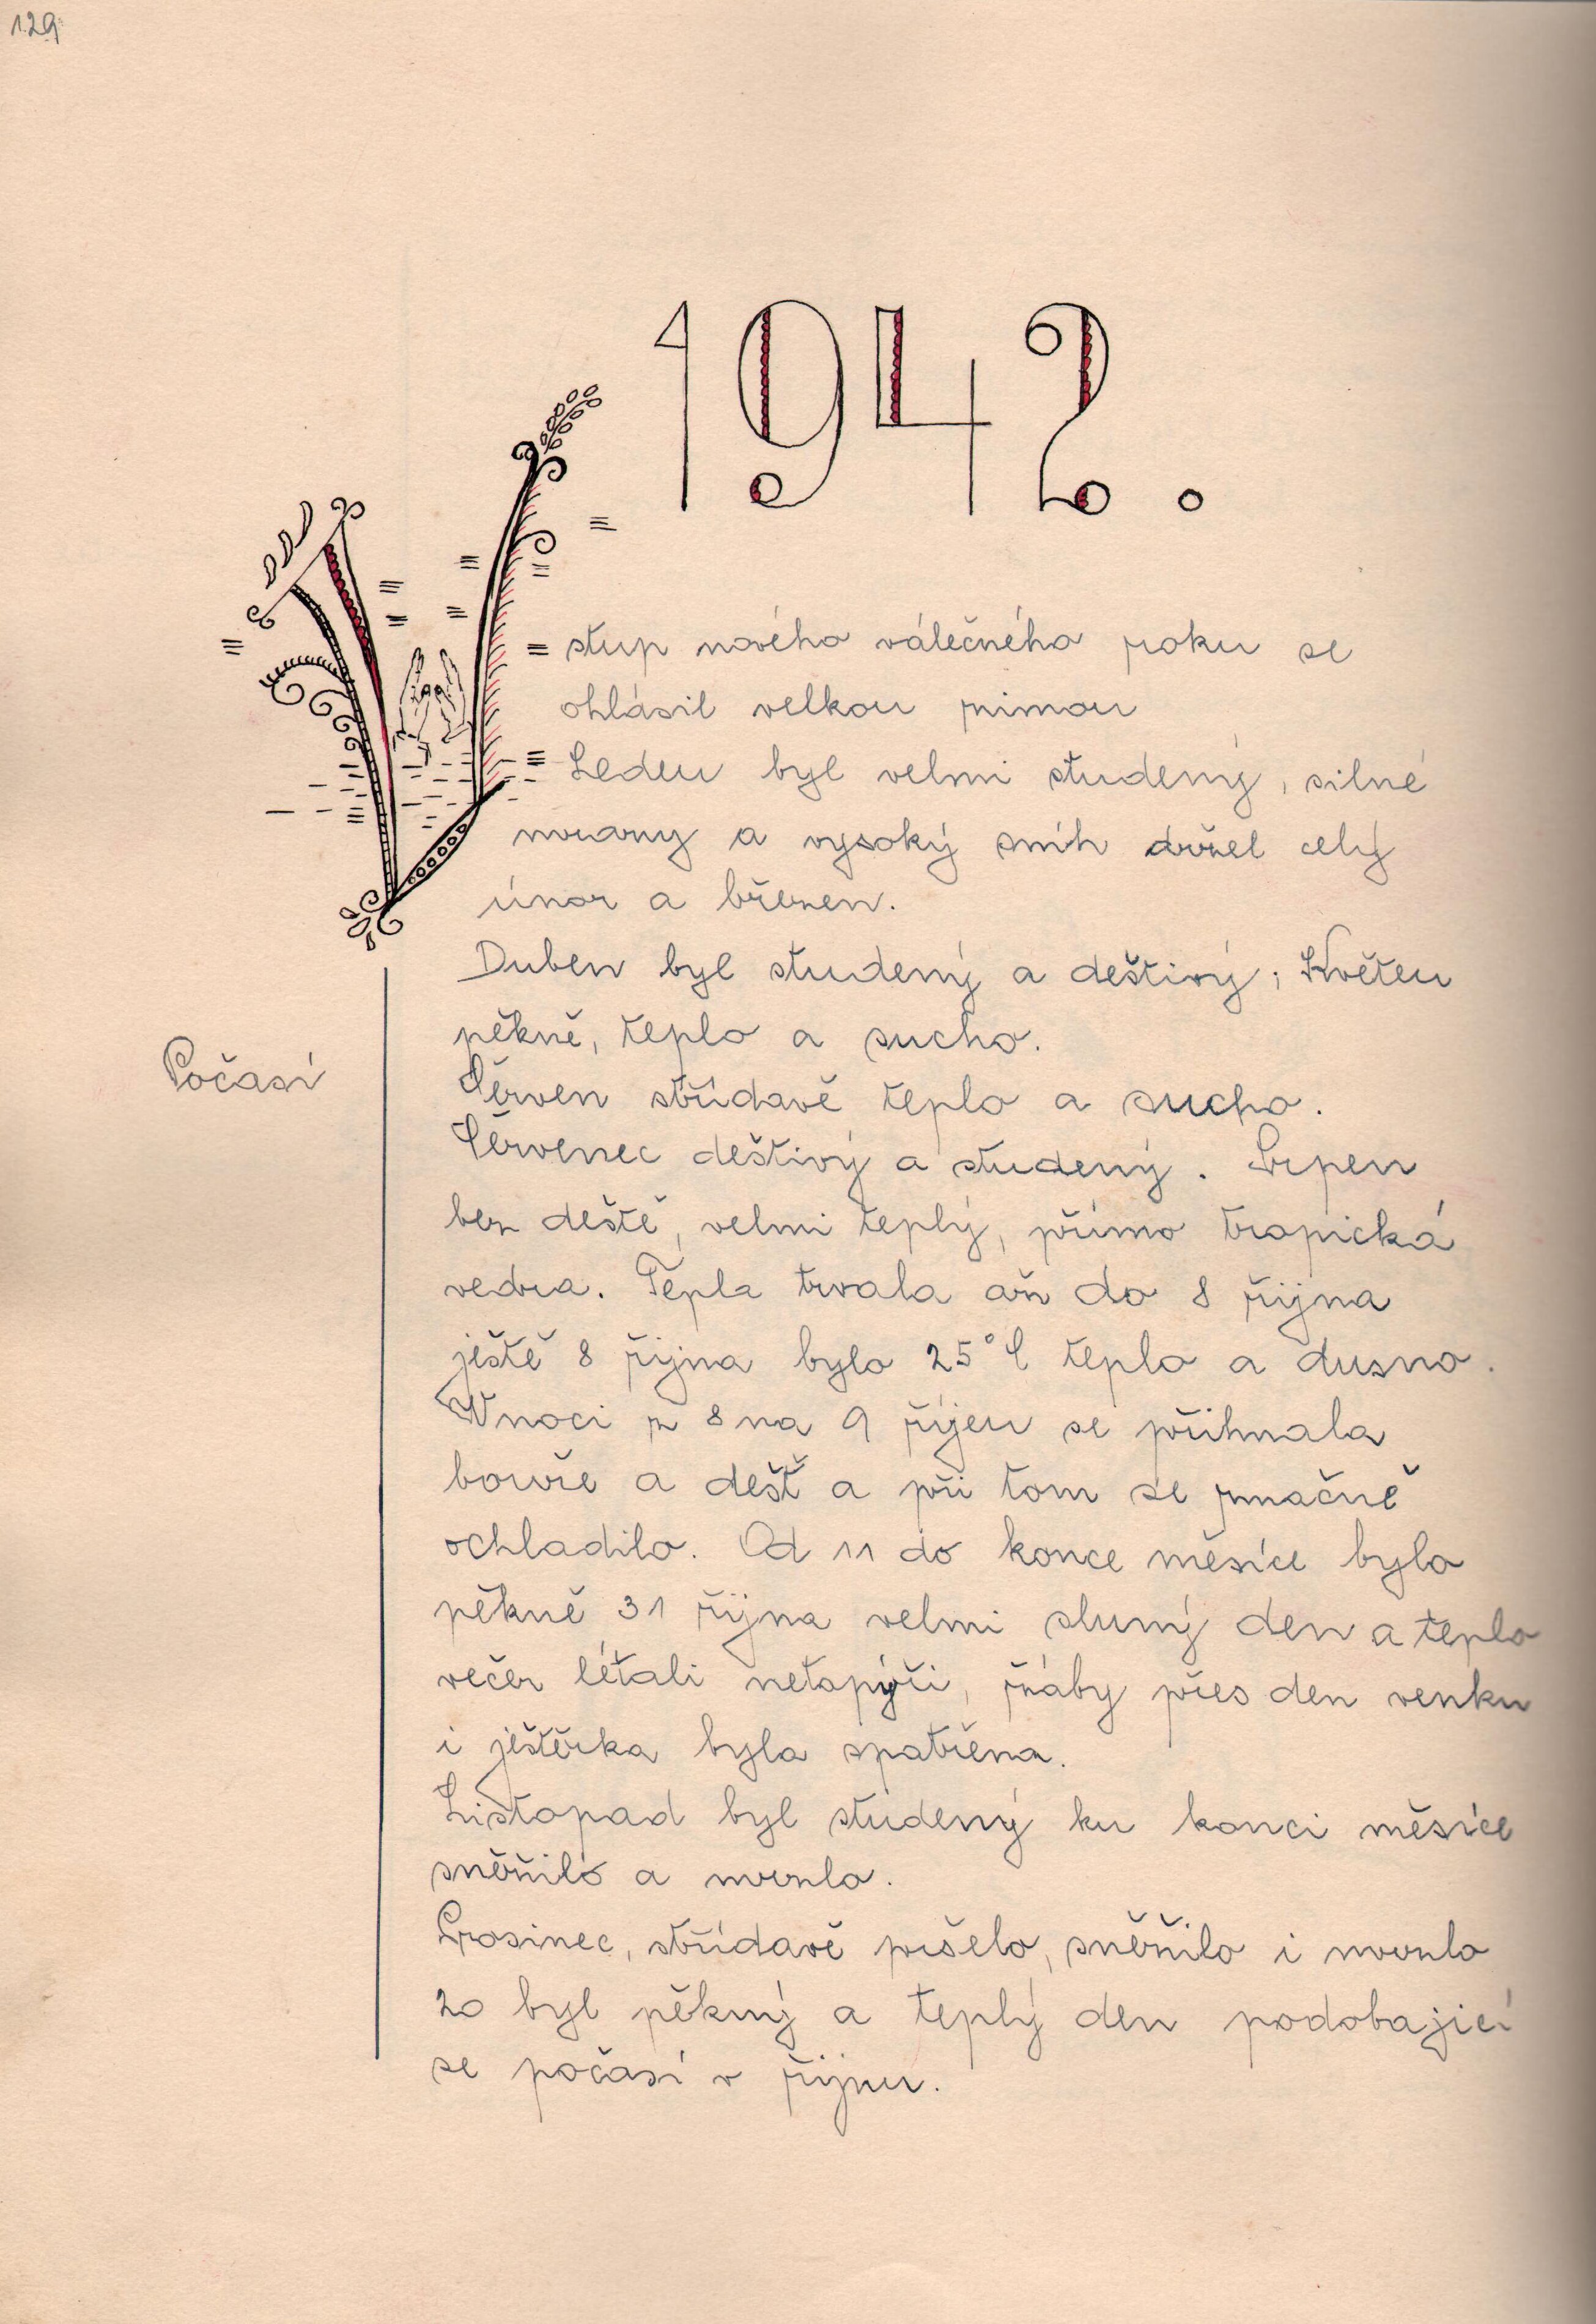 129
1942.
Vstup nového válečného roku se
ohlásil velkou zimou
Leden byl velmi studený, silné
mrazy a vysoký sníh držel celý
únor a březen.
Duben byl studený a deštivý; Květen
pěkně, teplo a sucho.
Počasí
Červen střídavě teplo a sucho.
Červenec deštivý a studený. Srpen
bez deště, velmi teplý, přímo tropická
vedra. Tepla trvala až do 8 října
ještě 8 října bylo 25°C teplo a dusno.
V noci z 8 na 9 říjen se přihnala
bouře a déšť a při tom se značně
ochladilo. Od 11 do konce měsíce bylo
pěkně 31 října velmi slunný den a teplo
večer létali netopýři, žáby přes den venku
i ještěrka byla spatřena.
Listopad byl studený ku konci měsíce
sněžilo a mrzlo.
Prosinec, střídavě pršelo, sněžilo i mrzlo
20 byl pěkný a teplý den podobající
se počasí v říjnu.